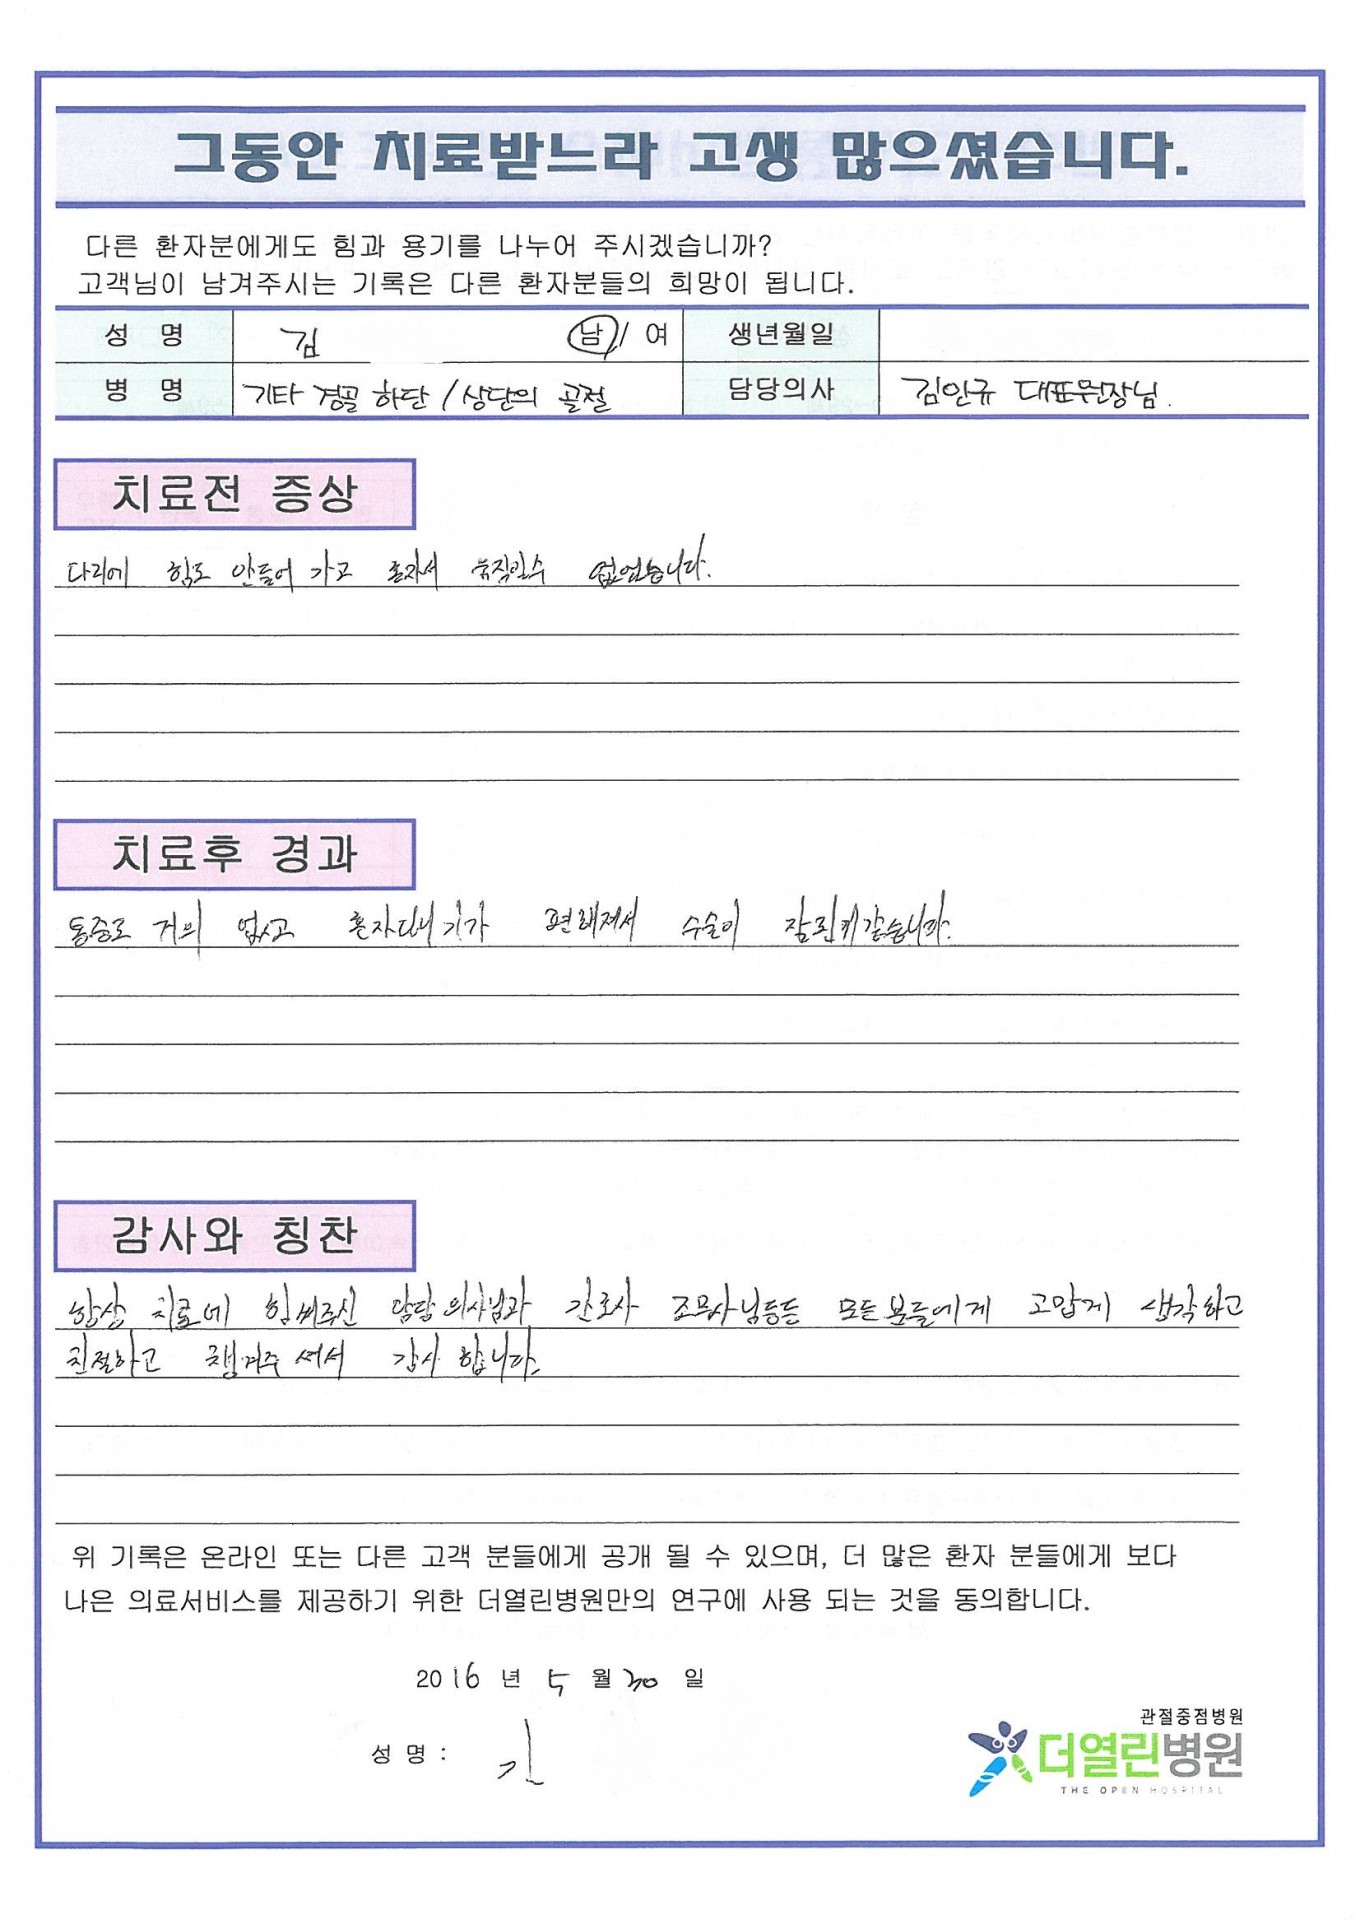 그동안 치료받느라 고생 많으셨습니다.
다른 환자분에게도 힘과 용기를 나누어 주시겠습니까?
고객님이 남겨주시는 기록은 다른 환자분들의 희망이 됩니다.
성 명 김 남 / 여 생년월일
병 명 기타 경골 하단 / 상단의 골절 담당의사 김인규 대표원장님.
치료전 증상
다리에 힘도 안들어 가고 혼자서 움직일수 없었습니다.
치료후 경과
통증도 거의 없고 혼자다니기가 편해져서 수술이 잘된거같습니다.
감사와 칭찬
항상 치료에 힘써주신 담당의사님과 간호사 조무사님등등 모든분들에게 고맙게 생각하고
친절하고 챙겨주셔서 감사합니다.
위 기록은 온라인 또는 다른 고객 분들에게 공개 될 수 있으며, 더 많은 환자 분들에게 보다
나은 의료서비스를 제공하기 위한 더열린병원만의 연구에 사용 되는 것을 동의합니다.
2016 년 5 월 30 일
성 명 : 김
관절중점병원
더열린병원
THE OPEN HOSPITAL